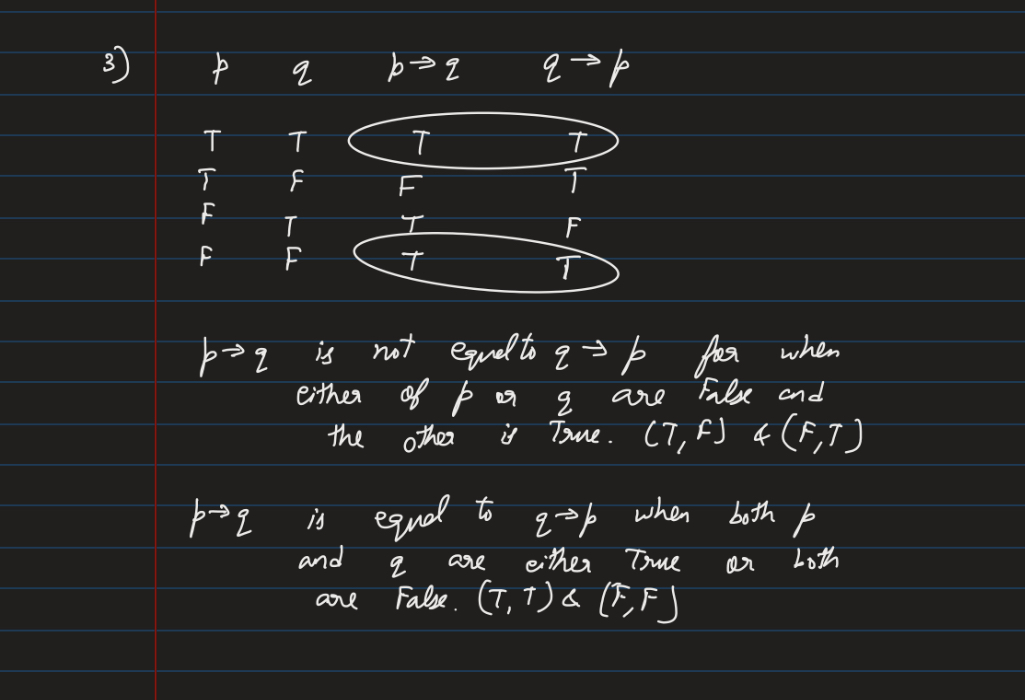 3) p q p→q q→p
T T T T
T F F T
F T T F
F F T T
p→q is not equal to q→p for when
either of p or q are False and
the other is True. (T, F) & (F, T)
p→q is equal to q→p when both p
and q are either True or both
are False. (T, T) & (F, F)